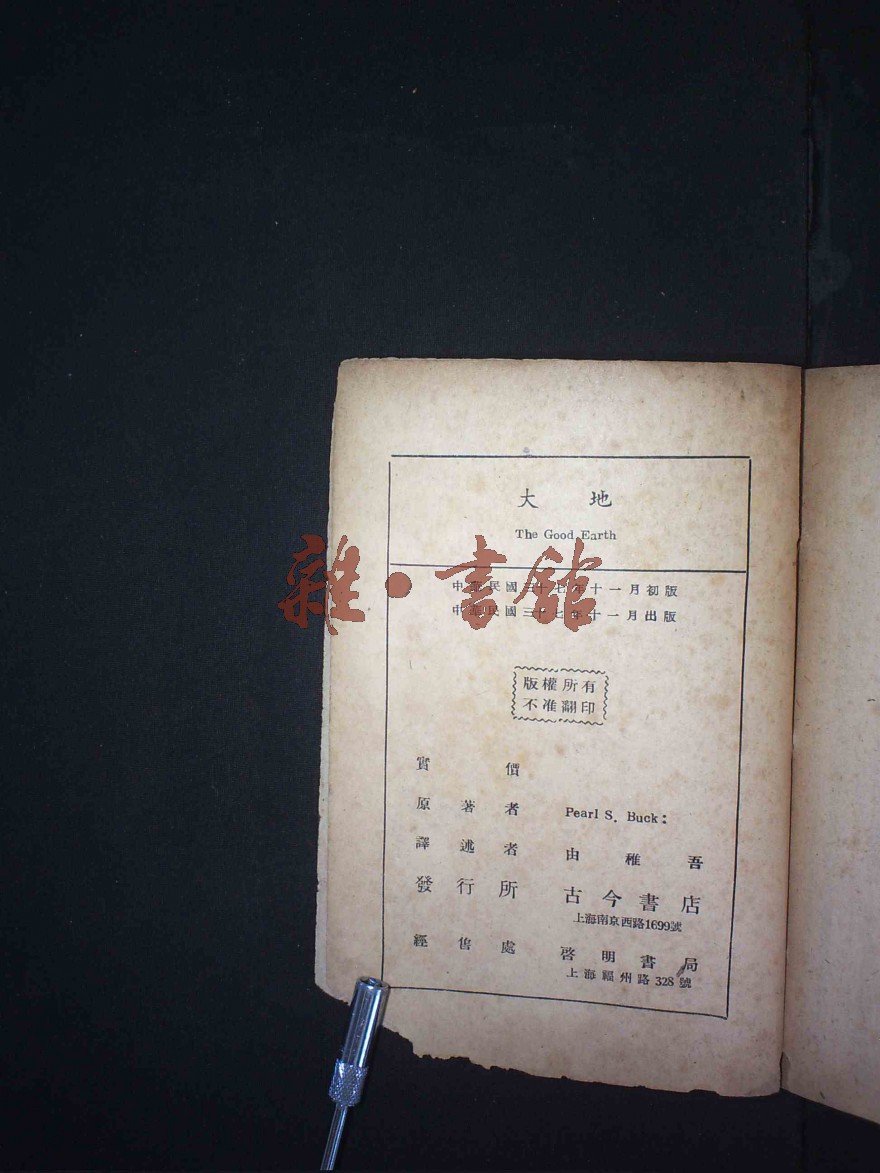 大地
The Good Earth
雜·書館
中華民國三十七年十一月初版
中華民國三十七年十一月出版
版權所有
不准翻印
實價
原著者 Pearl S. Buck:
譯述者 由稚吾
發行所 古今書店
上海南京西路1699號
經售處 啓明書局
上海福州路328號